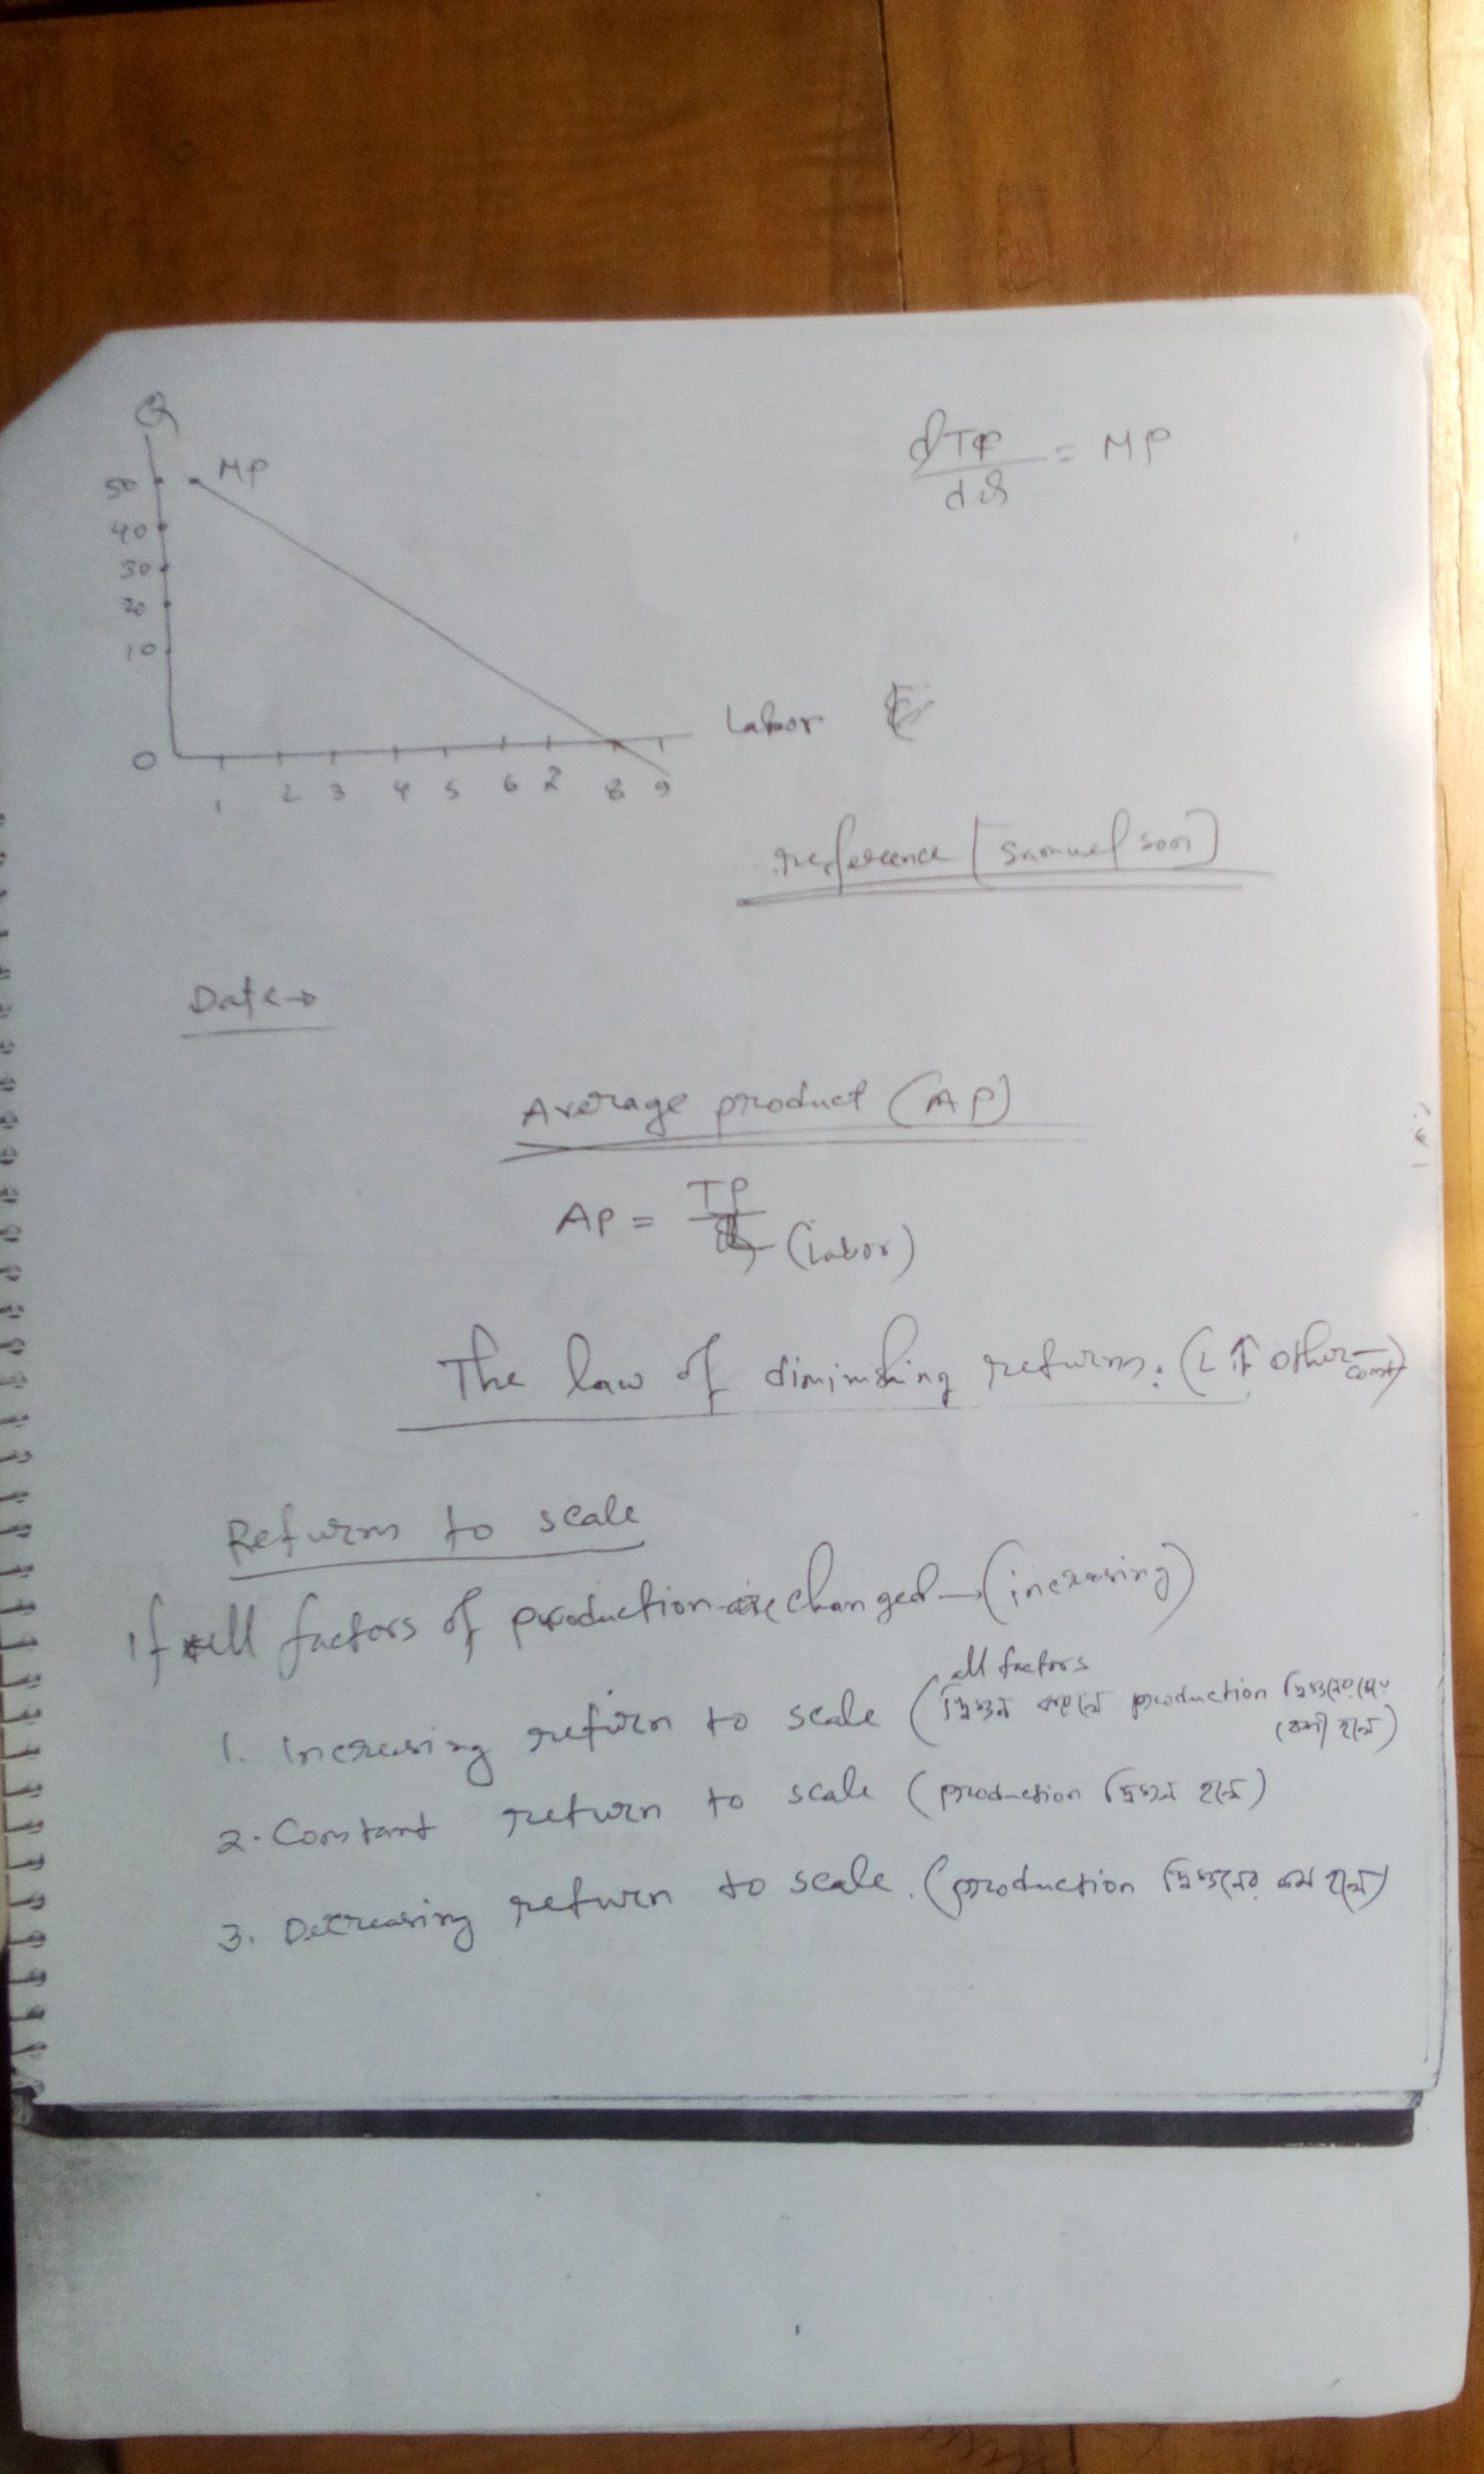 Q
MP
50
40
30
20
10
0
1 2 3 4 5 6 7 8 9
Labor
dTP = MP
d
reference [Samuelson]
Date→
Average product (AP)
AP = TP
(Labor)
The law of diminishing returns. (L↑ other const)
Returns to scale
If all factors of production are changed → (increasing)
all factors
1. Increasing return to scale (দ্বিগুন করলে production দ্বিগুনের
বেশী হলে)
2. Constant return to scale (production দ্বিগুন হলে)
3. Decreasing return to scale. (production দ্বিগুনের কম হলে)